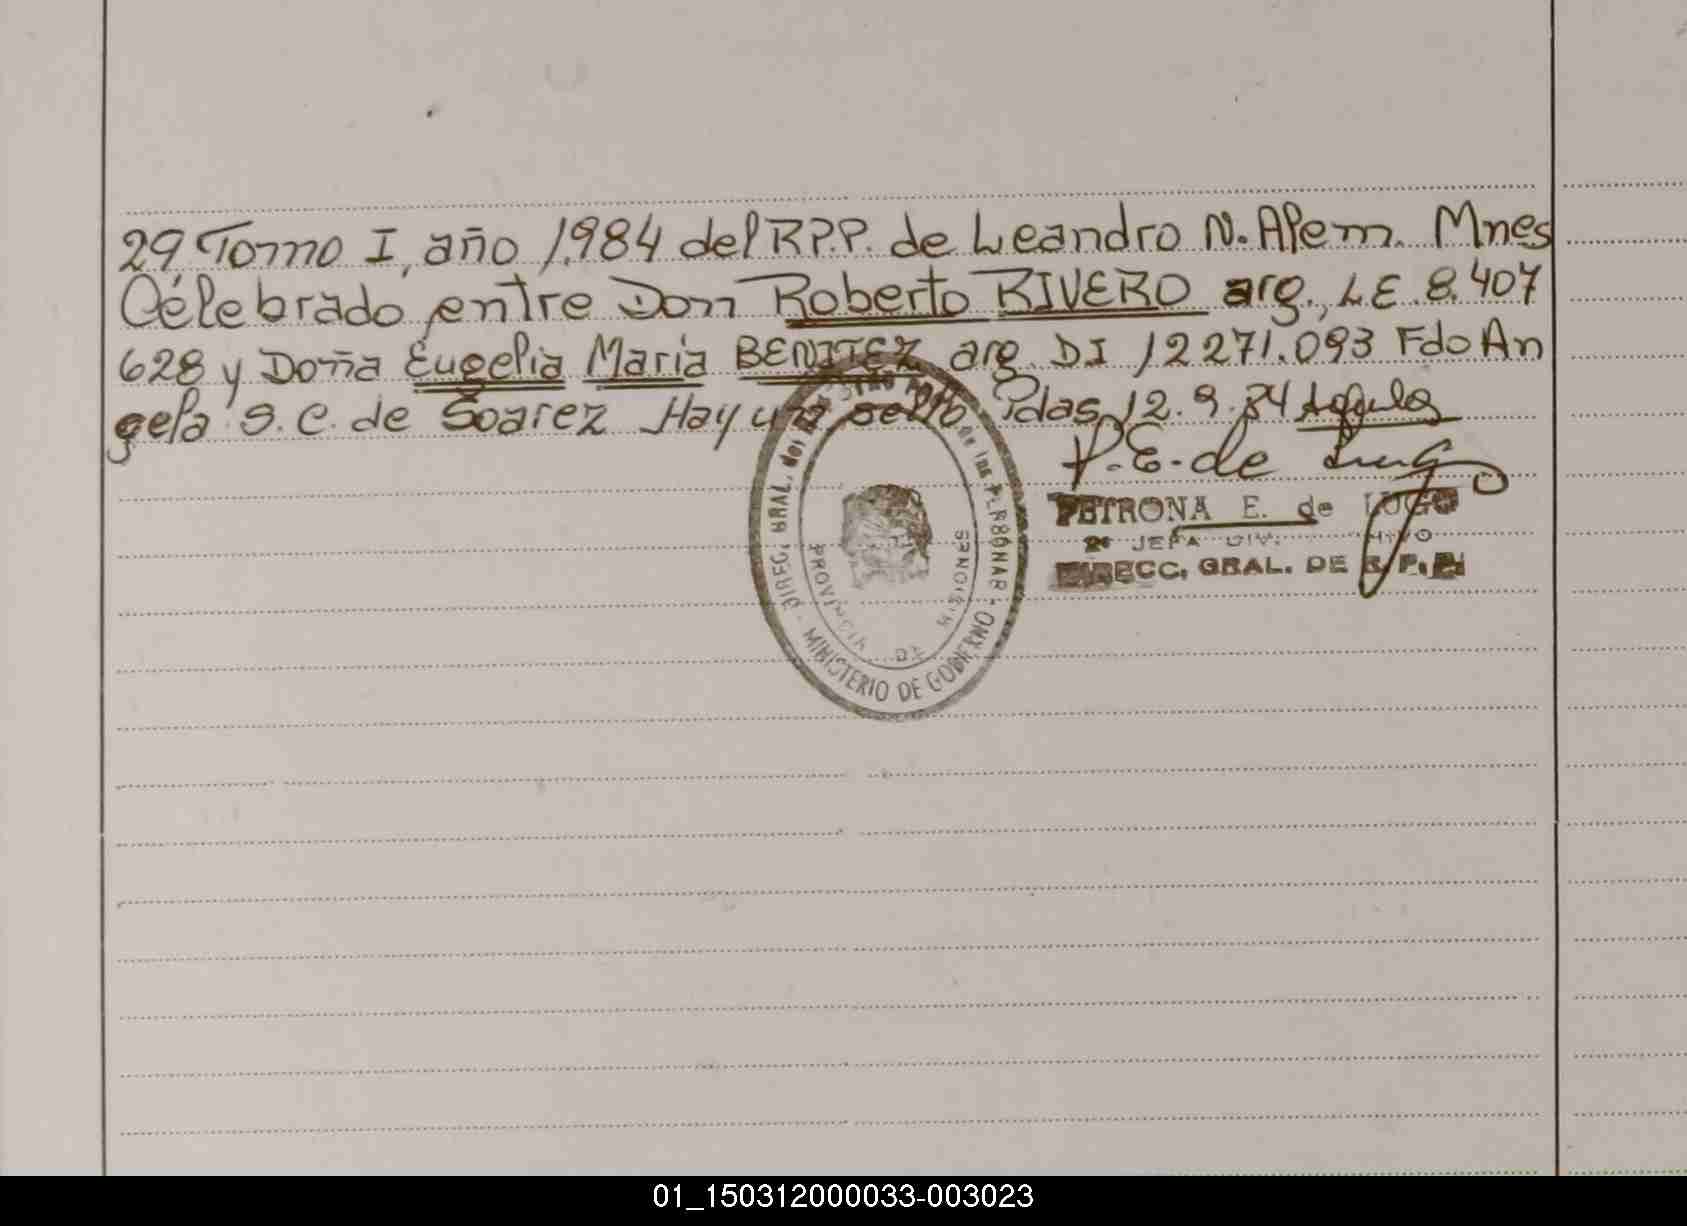 29 Tomo I, año 1.984 del R.P.P. de Leandro N. Alem. Mnes
Celebrado entre Don Roberto RIVERO arg., L E. 8.407
628 y Doña Eugelia Maria BENITEZ arg. DI 12271.093 Fdo An
gela S. C. de Soarez Hay un sello Pdas, 12.9.84
P.E. de Lugo
PETRONA E. de LUGO
2º JEFA DIV.
DIRECC. GRAL. DE R.P.P.
DIREC. GRAL. del de las PERSONAS
PROVINCIA DE MISIONES
MINISTERIO DE GOBIERNO
01_150312000033-003023